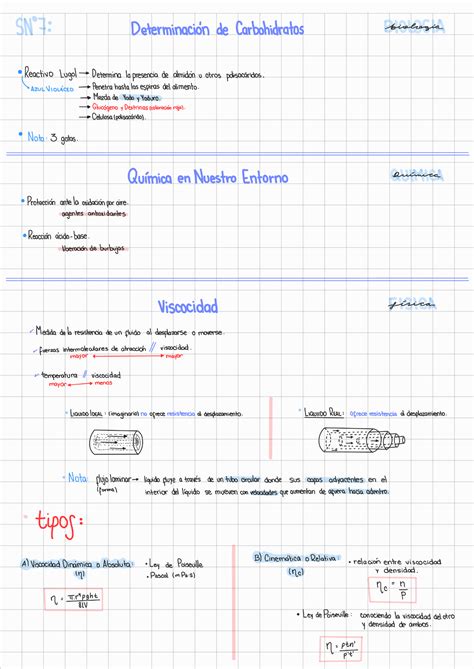 SN°7: Determinación de Carbohidratos BIOLOGIA biología
• Reactivo Lugol → Determina la presencia de almidón u otros polisacáridos.
AZUL VIOLÁCEO → Penetra hasta las espiras del alimento.
→ Mezcla de Yodo y Yoduro.
→ Glucógeno y Dextrinas (coloración roja).
→ Celulosa (polisacárido).
• Nota: 3 gotas.
Química en Nuestro Entorno QUIMICA química
• Protección ante la oxidación por aire.
agentes antioxidantes
• Reacción ácido-base.
liberación de burbujas
Viscocidad FISICA física
✓ Medida de la resistencia de un fluido al desplazarse o moverse.
✓ fuerzas intermoleculares de atracción // viscocidad.
mayor ↔ mayor
✓ temperatura // viscocidad
mayor ↔ menos
• LIQUIDO IDEAL: (imaginario) no ofrece resistencia al desplazamiento.
• LIQUIDO REAL: ofrece resistencia al desplazamiento.
• Nota: flujo laminar → líquido fluye a través de un tubo circular donde sus capas adyacentes en el
(forma) interior del líquido se mueven con velocidades que aumentan de afuera hacia adentro.
• tipos:
A) Viscocidad Dinámica o Absoluta:
(η)
• Ley de Poiseuille
• Pascal (mPa·s)
η = πr⁴ρght / 8lV
B) Cinemática o Relativa:
(ηc)
• relación entre viscocidad
y densidad.
ηc = η / ρ
• Ley de Poiseuille: conociendo la viscocidad del otro
y densidad de ambos.
η = ρtη' / ρ't'